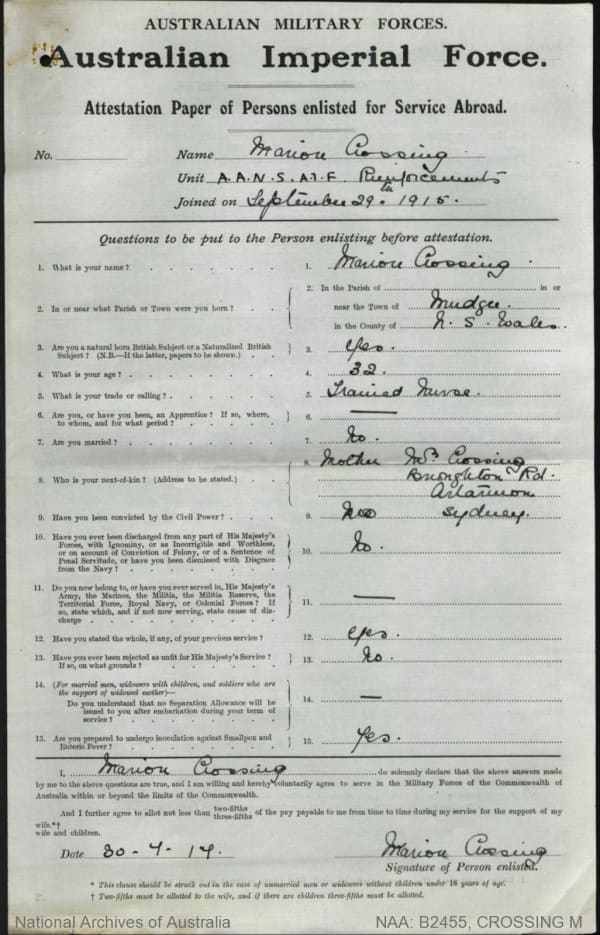 AUSTRALIAN MILITARY FORCES.
Australian Imperial Force.
Attestation Paper of Persons enlisted for Service Abroad.
No. Name Marion Crossing
Unit A.A.N.S. A.I.F. Reinforcements
Joined on September 29th. 1915.
Questions to be put to the Person enlisting before attestation.
1. What is your name? 1. Marion Crossing
2. In or near what Parish or Town were you born? 2. In the Parish of in or
near the Town of Mudgee.
in the County of N. S. Wales.
3. Are you a natural born British Subject or a Naturalized British
Subject? (N.B.—If the latter, papers to be shown.) 3. Yes.
4. What is your age? 4. 32.
5. What is your trade or calling? 5. Trained Nurse.
6. Are you, or have you been, an Apprentice? If so, where,
to whom, and for what period? 6. —
7. Are you married? 7. No.
8. Who is your next-of-kin? (Address to be stated.) 8. Mother Mrs Crossing
Broughton Rd.
Artarmon
9. Have you been convicted by the Civil Power? 9. No Sydney.
10. Have you ever been discharged from any part of His Majesty's
Forces, with Ignominy, or as Incorrigible and Worthless,
or on account of Conviction of Felony, or of a Sentence of
Penal Servitude, or have you been dismissed with Disgrace
from the Navy? 10. No.
11. Do you now belong to, or have you ever served in, His Majesty's
Army, the Marines, the Militia, the Militia Reserve, the
Territorial Force, Royal Navy, or Colonial Forces? If
so, state which, and if not now serving, state cause of dis-
charge 11. —
12. Have you stated the whole, if any, of your previous service? 12. Yes.
13. Have you ever been rejected as unfit for His Majesty's Service?
If so, on what grounds? 13. No.
14. (For married men, widowers with children, and soldiers who are
the support of widowed mother)—
Do you understand that no Separation Allowance will be
issued to you after embarkation during your term of
service? 14. —
15. Are you prepared to undergo inoculation against Smallpox and
Enteric Fever? 15. Yes.
I, Marion Crossing do solemnly declare that the above answers made
by me to the above questions are true, and I am willing and hereby voluntarily agree to serve in the Military Forces of the Commonwealth of
Australia within or beyond the limits of the Commonwealth.
And I further agree to allot not less than two-fifths three-fifths of the pay payable to me from time to time during my service for the support of my
wife.*†
wife and children.
Date Marion Crossing
Signature of Person enlisted.
* This clause should be struck out in the case of unmarried men or widowers without children under 18 years of age.
† Two-fifths must be allotted to the wife, and if there are children three-fifths must be allotted.
National Archives of Australia NAA: B2455, CROSSING M